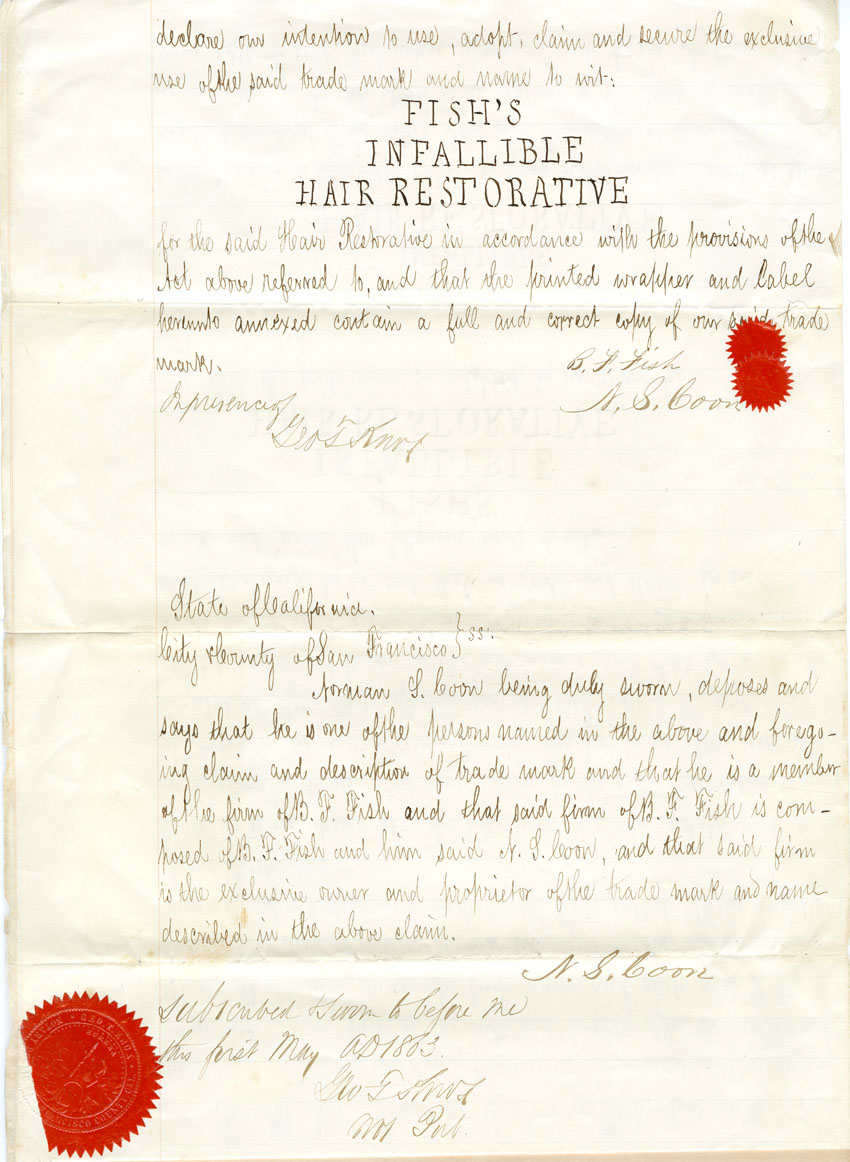 declare our intention to use, adopt, claim and secure the exclusive
use of the said trade mark and name to wit:
FISH'S
INFALLIBLE
HAIR RESTORATIVE
for the said Hair Restorative in accordance with the provisions of the
Act above referred to, and that the printed wrapper and Label
hereunto annexed contain a full and correct copy of our said trade
mark.
B. F. Fish
N. S. Coon
In presence of
Geo T Knox
State of California.
City & County of San Francisco } ss.
Norman S. Coon being duly sworn, deposes and
says that he is one of the persons named in the above and forego-
ing claim and description of trade mark and that he is a member
of the firm of B. F. Fish and that said firm of B. F. Fish is com-
posed of B. F. Fish and him said N. S. Coon, and that said firm
is the exclusive owner and proprietor of the trade mark and name
described in the above claim.
N. S. Coon
Subscribed & Sworn to before me
this first May AD 1863.
Geo T Knox
Not Pub.